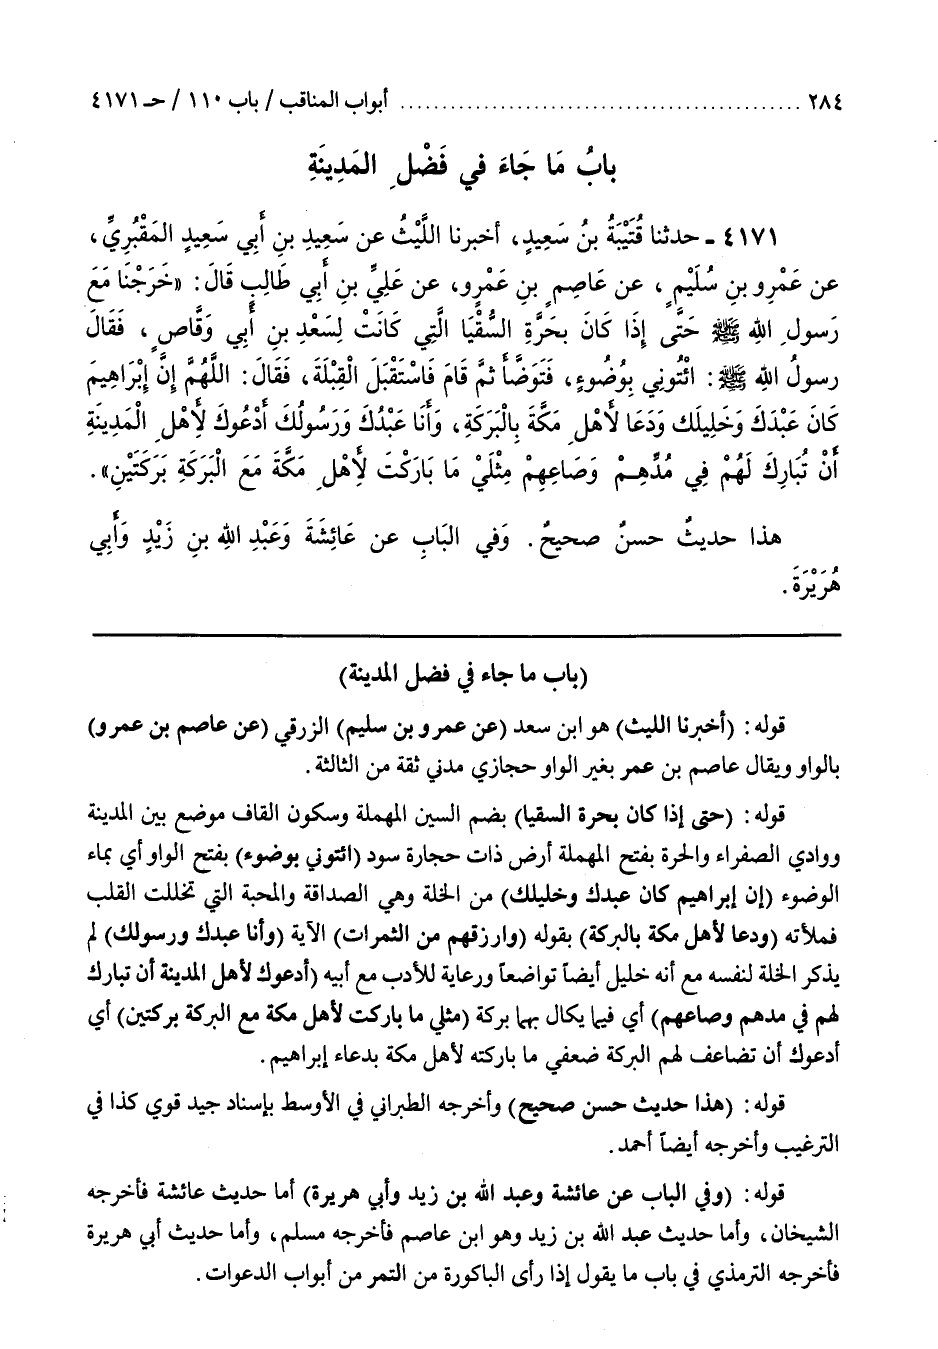 ٢٨٤ ................................................ أبواب المناقب / باب ١١٠ / حـ ٤١٧١
بابُ مَا جَاءَ في فَضْلِ المَدِينَةِ
٤١٧١ ـ حدثنا قُتَيْبَةُ بنُ سَعِيدٍ، أخبرنا اللَّيْثُ عن سَعِيدِ بنِ أَبي سَعِيدٍ المَقْبُرِيِّ،
عن عَمْرِو بنِ سُلَيْمٍ، عن عَاصِمِ بنِ عَمْرٍو، عن عَلِيِّ بنِ أَبي طَالِبٍ قَالَ: «خَرَجْنَا مَعَ
رَسولِ الله ﷺ حَتَّى إِذَا كَانَ بحَرَّةِ السُّقْيَا الَّتِي كَانَتْ لِسَعْدِ بنِ أَبي وَقَّاصٍ، فَقَالَ
رسولُ الله ﷺ: ائْتُونِي بِوُضُوءٍ، فَتَوَضَّأَ ثمَّ قَامَ فَاسْتَقْبَلَ الْقِبْلَةَ، فَقَالَ: اللَّهُمَّ إِنَّ إِبْرَاهِيمَ
كَانَ عَبْدَكَ وَخَلِيلَك وَدَعَا لأَهْلِ مَكَّةَ بِالْبَرَكَةِ، وَأَنَا عَبْدُكَ وَرَسُولُكَ أَدْعُوكَ لِأَهْلِ الْمَدِينَةِ
أَنْ تُبَارِكَ لَهُمْ فِي مُدِّهِمْ وَصَاعِهِمْ مِثْلَيْ مَا بَارَكْتَ لِأَهْلِ مَكَّةَ مَعَ الْبَرَكَةِ بَرَكَتَيْنِ».
هذا حديثٌ حسنٌ صحيحٌ. وَفي البَابِ عن عَائِشَةَ وَعَبْدِ الله بنِ زَيْدٍ وَأَبي
هُرَيْرَةَ.
(باب ما جاء في فضل المدينة)
قوله: (أخبرنا الليث) هو ابن سعد (عن عمرو بن سليم) الزرقي (عن عاصم بن عمرو)
بالواو ويقال عاصم بن عمر بغير الواو حجازي مدني ثقة من الثالثة.
قوله: (حتى إذا كان بحرة السقيا) بضم السين المهملة وسكون القاف موضع بين المدينة
ووادي الصفراء والحرة بفتح المهملة أرض ذات حجارة سود (ائتوني بوضوء) بفتح الواو أي بماء
الوضوء (إن إبراهيم كان عبدك وخليلك) من الخلة وهي الصداقة والمحبة التي تخللت القلب
فملأته (ودعا لأهل مكة بالبركة) بقوله (وارزقهم من الثمرات) الآية (وأنا عبدك ورسولك) لم
يذكر الخلة لنفسه مع أنه خليل أيضاً تواضعاً ورعاية للأدب مع أبيه (أدعوك لأهل المدينة أن تبارك
لهم في مدهم وصاعهم) أي فيما يكال بهما بركة (مثلي ما باركت لأهل مكة مع البركة بركتين) أي
أدعوك أن تضاعف لهم البركة ضعفي ما باركته لأهل مكة بدعاء إبراهيم.
قوله: (هذا حديث حسن صحيح) وأخرجه الطبراني في الأوسط بإسناد جيد قوي كذا في
الترغيب وأخرجه أيضاً أحمد.
قوله: (وفي الباب عن عائشة وعبد الله بن زيد وأبي هريرة) أما حديث عائشة فأخرجه
الشيخان، وأما حديث عبد الله بن زيد وهو ابن عاصم فأخرجه مسلم، وأما حديث أبي هريرة
فأخرجه الترمذي في باب ما يقول إذا رأى الباكورة من التمر من أبواب الدعوات.